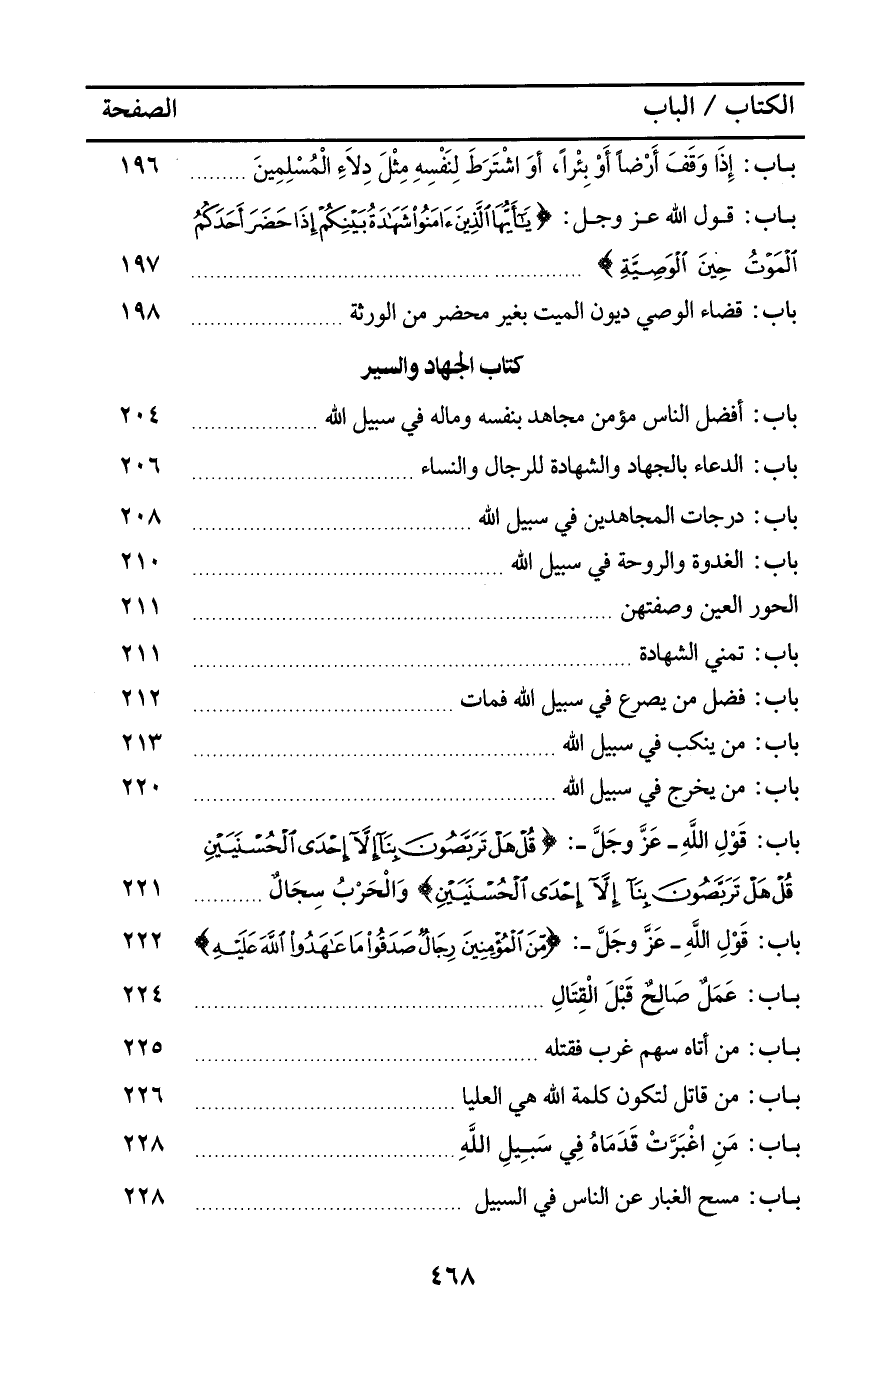 الكتاب / الباب الصفحة
باب: إِذَا وَقَفَ أَرْضاً أَوْ بِئْراً، أوَ اشْتَرَطَ لِنَفْسِهِ مِثْلَ دِلاَءِ الْمُسْلِمِينَ ......... ١٩٦
باب: قول الله عز وجل: ﴿يَٰٓأَيُّهَا ٱلَّذِينَ ءَامَنُوا۟ شَهَٰدَةُ بَيْنِكُمْ إِذَا حَضَرَ أَحَدَكُمُ
ٱلْمَوْتُ حِينَ ٱلْوَصِيَّةِ﴾ ......... ١٩٧
باب: قضاء الوصي ديون الميت بغير محضر من الورثة ......... ١٩٨
كتاب الجهاد والسير
باب: أفضل الناس مؤمن مجاهد بنفسه وماله في سبيل الله ......... ٢٠٤
باب: الدعاء بالجهاد والشهادة للرجال والنساء ......... ٢٠٦
باب: درجات المجاهدين في سبيل الله ......... ٢٠٨
باب: الغدوة والروحة في سبيل الله ......... ٢١٠
الحور العين وصفتهن ......... ٢١١
باب: تمني الشهادة ......... ٢١١
باب: فضل من يصرع في سبيل الله فمات ......... ٢١٢
باب: من ينكب في سبيل الله ......... ٢١٣
باب: من يخرج في سبيل الله ......... ٢٢٠
باب: قَوْلِ اللَّهِ ـ عَزَّ وجَلَّ ـ: ﴿قُلْ هَلْ تَرَبَّصُونَ بِنَآ إِلَّآ إِحْدَى ٱلْحُسْنَيَيْنِ
قُلْ هَلْ تَرَبَّصُونَ بِنَآ إِلَّآ إِحْدَى ٱلْحُسْنَيَيْنِ﴾ وَالْحَرْبُ سِجَالٌ ......... ٢٢١
باب: قَوْلِ اللَّهِ ـ عَزَّ وجَلَّ ـ: ﴿مِّنَ ٱلْمُؤْمِنِينَ رِجَالٌ صَدَقُوا۟ مَا عَٰهَدُوا۟ ٱللَّهَ عَلَيْهِ﴾ ٢٢٢
باب: عَمَلٌ صَالِحٌ قَبْلَ الْقِتَالِ ......... ٢٢٤
باب: من أتاه سهم غرب فقتله ......... ٢٢٥
باب: من قاتل لتكون كلمة الله هي العليا ......... ٢٢٦
باب: مَنِ اغْبَرَّتْ قَدَمَاهُ فِي سَبِيلِ اللَّهِ ......... ٢٢٨
باب: مسح الغبار عن الناس في السبيل ......... ٢٢٨
٤٦٨